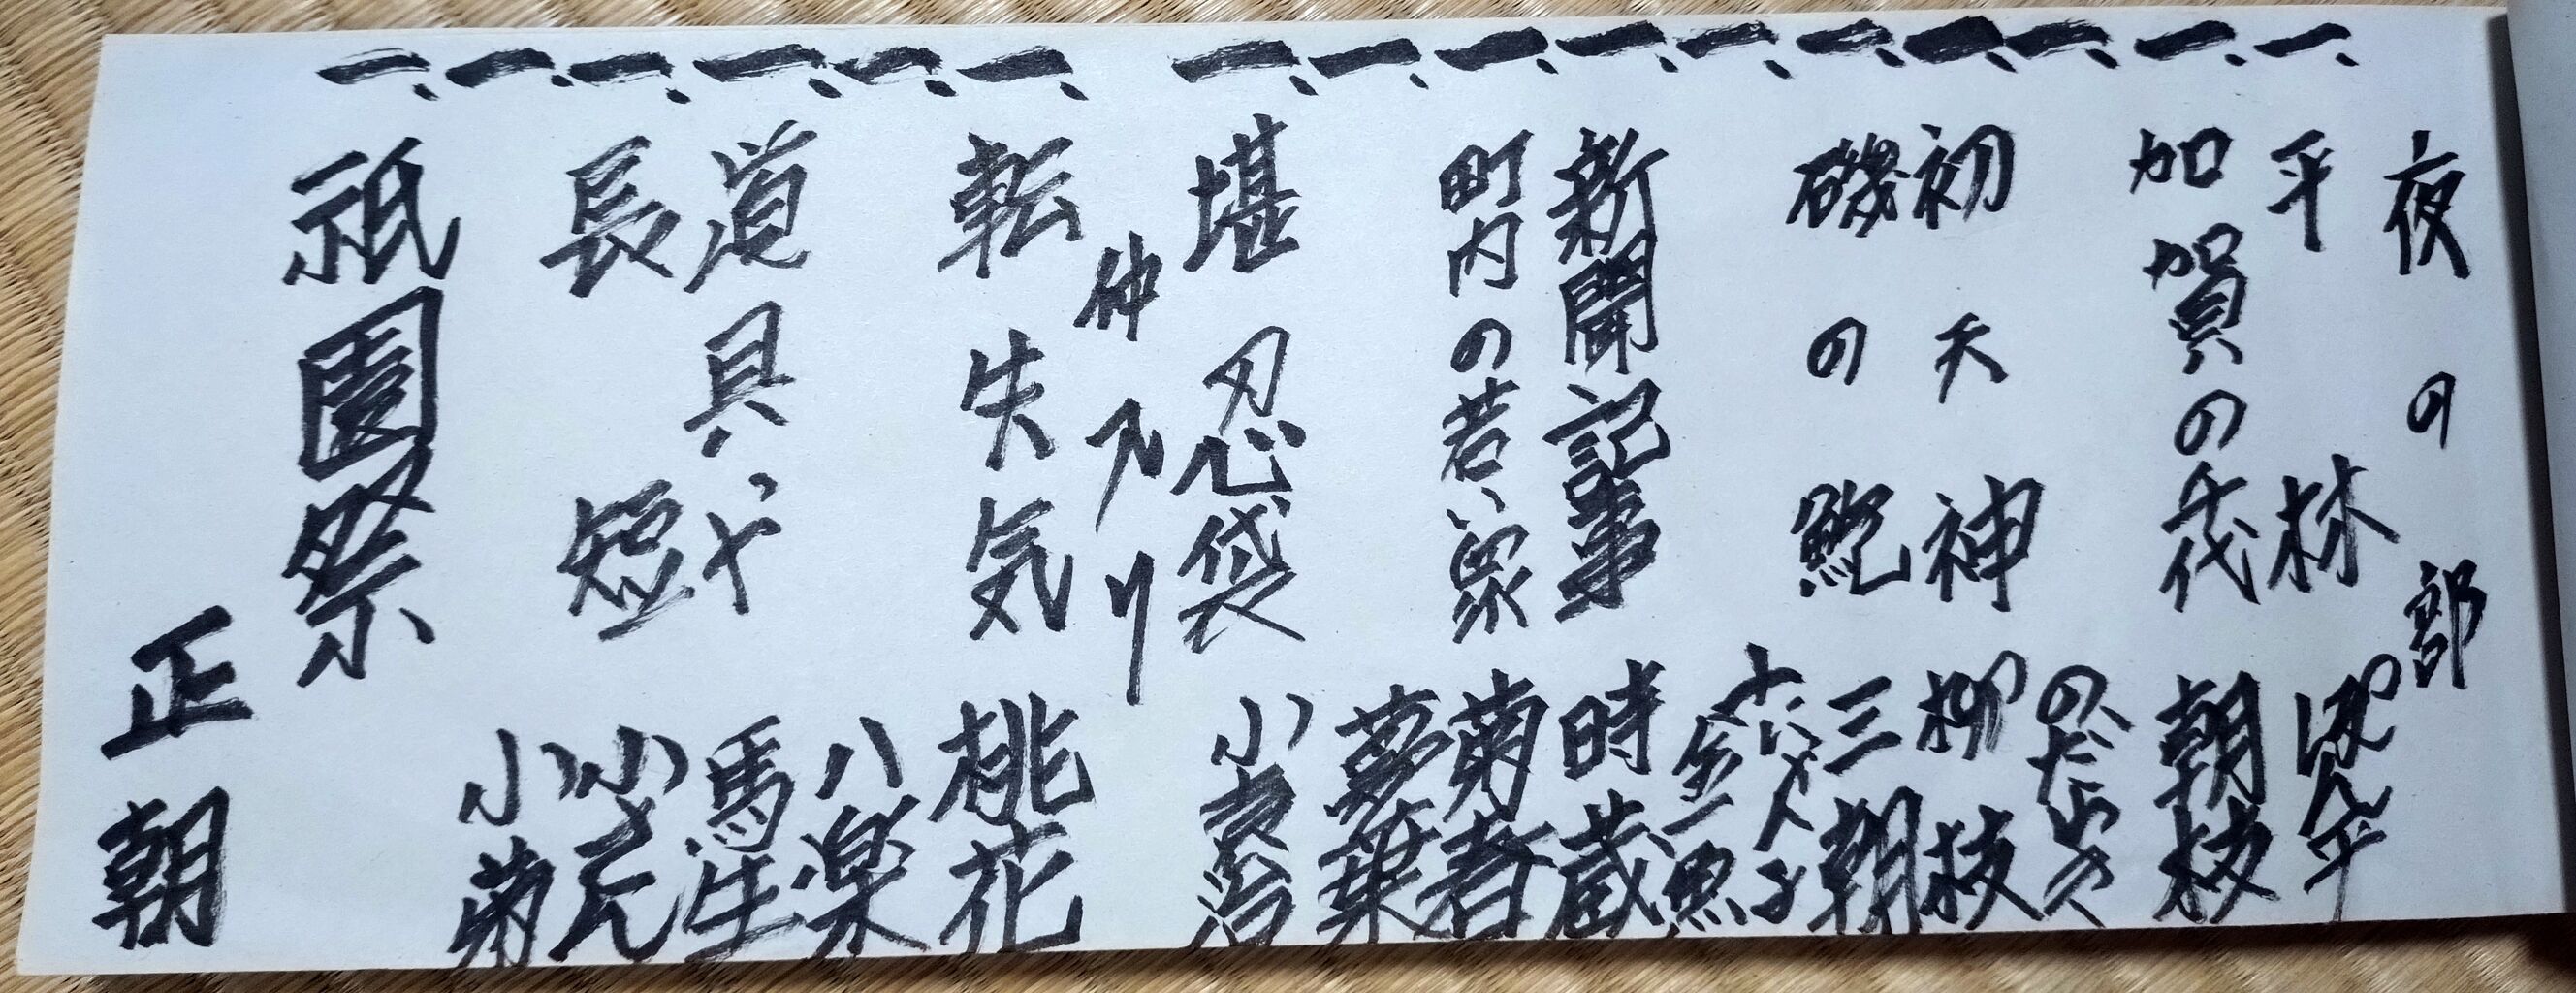 夜の部
一、平林
一、加賀の千代 朝枝
一、のだゆき
一、初天神 柳枝
一、磯の鮑 三朝
一、にゃん子 金魚
一、新聞記事 時蔵
一、町内の若い衆 菊春
一、夢葉
一、堪忍袋 小袁治
仲入り
一、転失気 桃花
一、八楽
一、道具や 馬生
一、長短 小さん
一、小菊
一、祇園祭 正朝